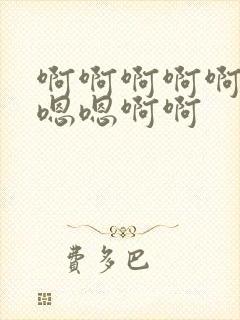 啊啊啊啊啊
嗯嗯啊啊
费多巴